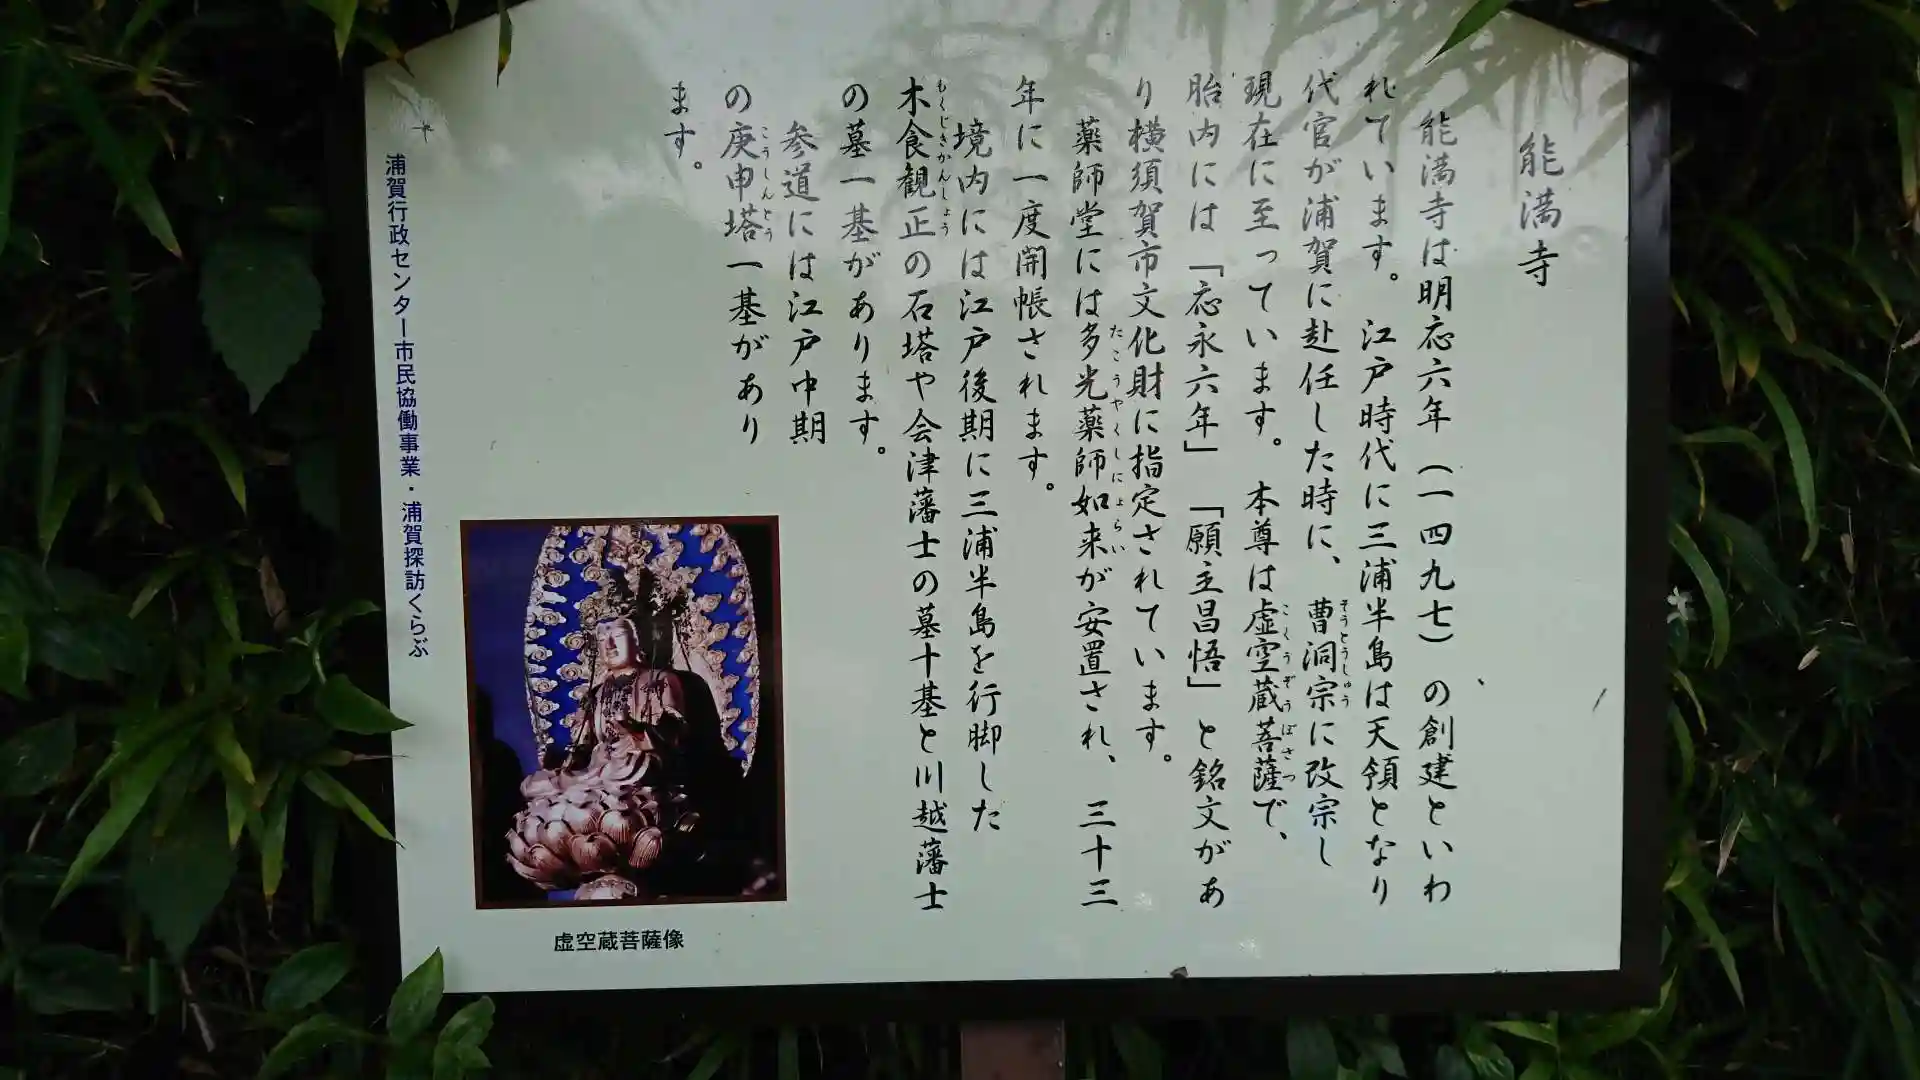 能満寺
能満寺は明応六年（一四九七）の創建といわ
れています。江戸時代に三浦半島は天領となり
代官が浦賀に赴任した時に、曹洞宗に改宗し
そうとうしゅう
現在に至っています。本尊は虚空蔵菩薩で、
こくうぞうぼさつ
胎内には「応永六年」「願主昌悟」と銘文があ
り横須賀市文化財に指定されています。
薬師堂には多光薬師如来が安置され、三十三
たこうやくしにょらい
年に一度開帳されます。
境内には江戸後期に三浦半島を行脚した
木食観正の石塔や会津藩士の墓十基と川越藩士
もくじきかんしょう
の墓一基があります。
参道には江戸中期
の庚申塔一基があり
こうしんとう
ます。
虚空蔵菩薩像
浦賀行政センター市民協働事業・浦賀探訪くらぶ